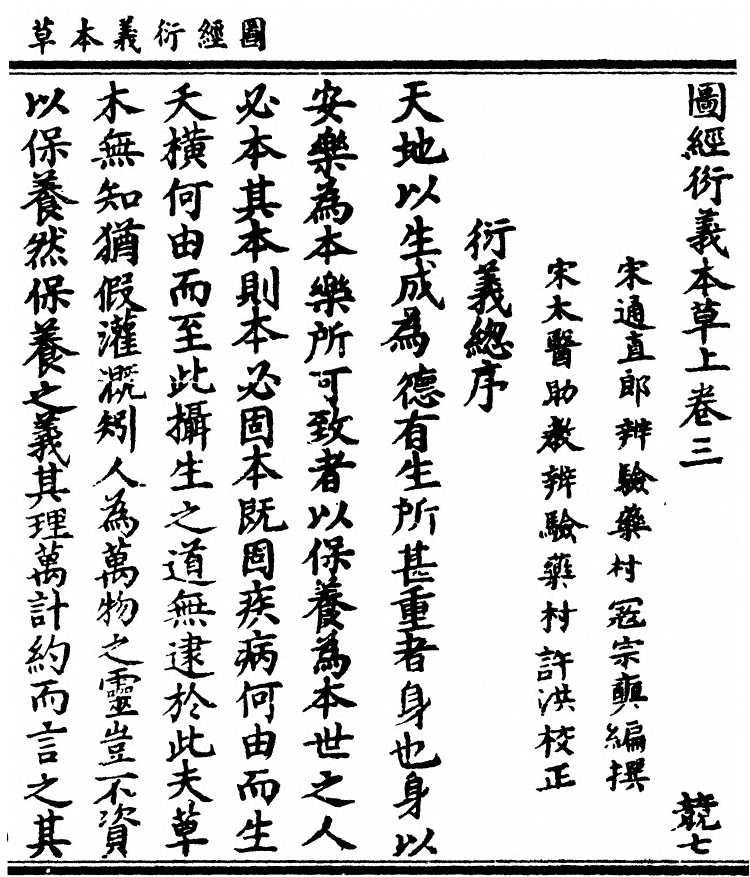 圖經衍義本草
圖經衍義本草上卷三 競七
宋通直郎辨驗藥村冦宗奭編撰
宋太醫助教辨驗藥村許洪校正
衍義總序
天地以生成為德有生所甚重者身也身以
安樂為本樂所可致者以保養為本世之人
必本其本則本必固本既固疾病何由而生
夭橫何由而至此攝生之道無逮於此夫草
木無知猶假灌溉矧人為萬物之靈豈不資
以保養然保養之義其理萬計約而言之其